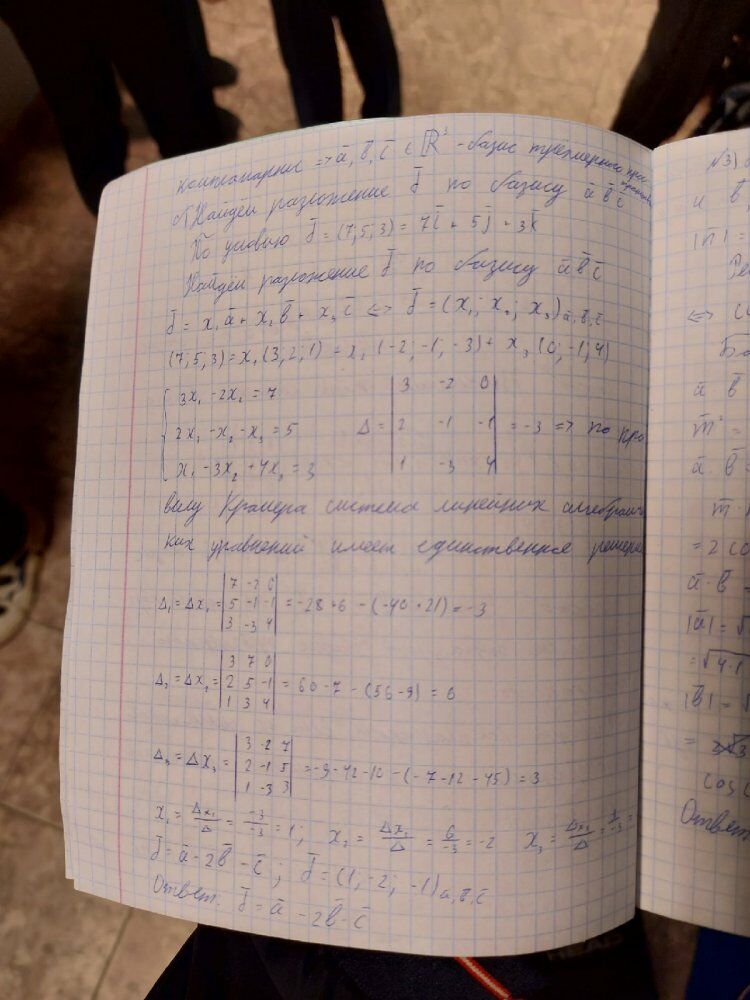 компланарны => a̅, b̅, c̅ ∈ ℝ³ - базис трёхмерного прос
транства
б) Найдём разложение d̅ по базису a̅ b̅ c̅
По условию d̅ = (7; 5; 3) = 7i̅ + 5j̅ + 3k̅
Найдём разложение d̅ по базису a̅ b̅ c̅
d̅ = x₁a̅ + x₂b̅ + x₃c̅ <=> d̅ = (x₁; x₂; x₃)a̅,b̅,c̅
(7; 5; 3) = x₁(3; 2; 1) = x₂(-2; -1; -3) + x₃(0; -1; 4)
3x₁ - 2x₂ = 7
2x₁ - x₂ - x₃ = 5
x₁ - 3x₂ + 4x₃ = 3
Δ = |3 -2 0
2 -1 -1
1 -3 4| = -3 => по пра
вилу Крамера система линейных алгебраичес
ких уравнений имеет единственное решение
Δ₁ = Δx₁ = |7 -2 0
5 -1 -1
3 -3 4| = -28 + 6 - (-40 + 21) = -3
Δ₂ = Δx₂ = |3 7 0
2 5 -1
1 3 4| = 60 - 7 - (56 - 9) = 6
Δ₃ = Δx₃ = |3 -2 7
2 -1 5
1 -3 3| = -9 - 42 - 10 - (-7 - 12 - 45) = 3
x₁ = Δx₁/Δ = -3/-3 = 1; x₂ = Δx₂/Δ = 6/-3 = -2 x₃ = Δx₃/Δ = 3/-3 =
d̅ = a̅ - 2b̅ - c̅; d̅ = (1; -2; -1)a̅,b̅,c̅
Ответ: d̅ = a̅ - 2b̅ - c̅
№3)
и b̅
|n̅| =
Ре
<=>
a̅ · b̅
m̅² =
a̅ · b̅
m̅ ·
= 2 co
a̅ · b̅
|a̅| = √
= √4·1
|b̅| =
=
cos
Ответ